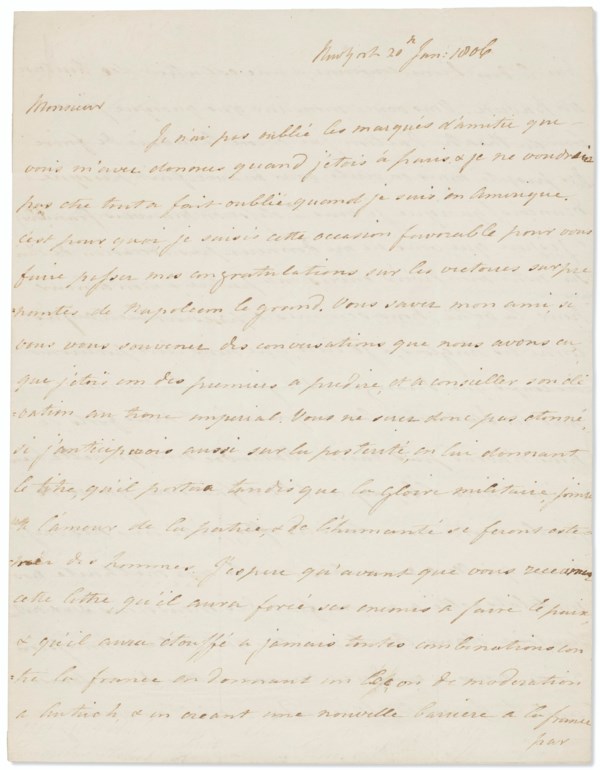 New York 20th Jan: 1806
Monsieur
Je n'ai pas oublié les marques d'amitie que
vous m'avez donnees quand j'etois à paris & je ne voudrois
pas etre tout a fait oublié quand je suis en Amerique.
C'est pour quoi je saisis cette occasion favorable pour vous
faire passer mes congratulations sur les victoires surpre
-nantes de Napoleon le grand. Vous savez mon ami, si
vous vous souvenez des conversations que nous avons eu
que j'etois un des premiers a predire, et a conseiller son ele
-vation au trone imperial. Vous ne serez donc pas etonné,
si j'anticipois aussi sur la posterité, en lui donnant
le titre, qu'il portera tandis que la gloire militaire, jointe
a l'amour de la patrie, & de l'humanité se feront este
-mer des hommes. J'espere qu'avant que vous receviez
cette lettre qu'il aura forcé ses enemis a faire le paix,
& qu'il aura étouffé a jamais toutes combinations con
-tre la france en donnant un leçon de moderation
a Autrich, & en creant une nouvelle barriere a la france
par